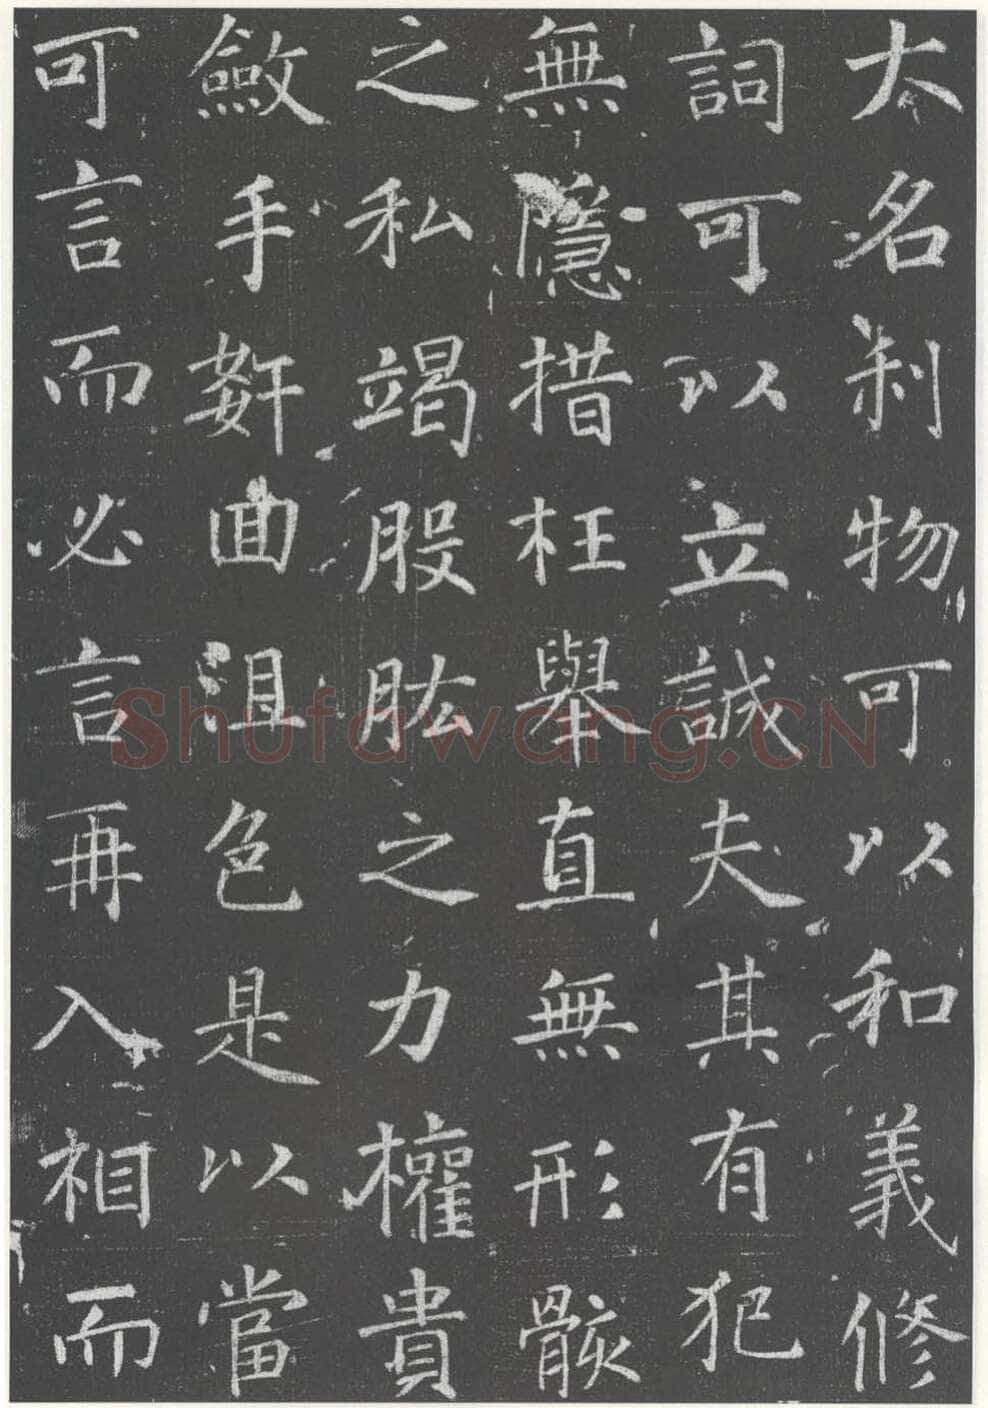 太名剬物可以和義修
詞可以立誠夫其有犯
無隱措枉舉直無形骸
之私竭股肱之力權貴
斂手姧回沮色是以當
可言而必言再入相而
Shufawang.CN